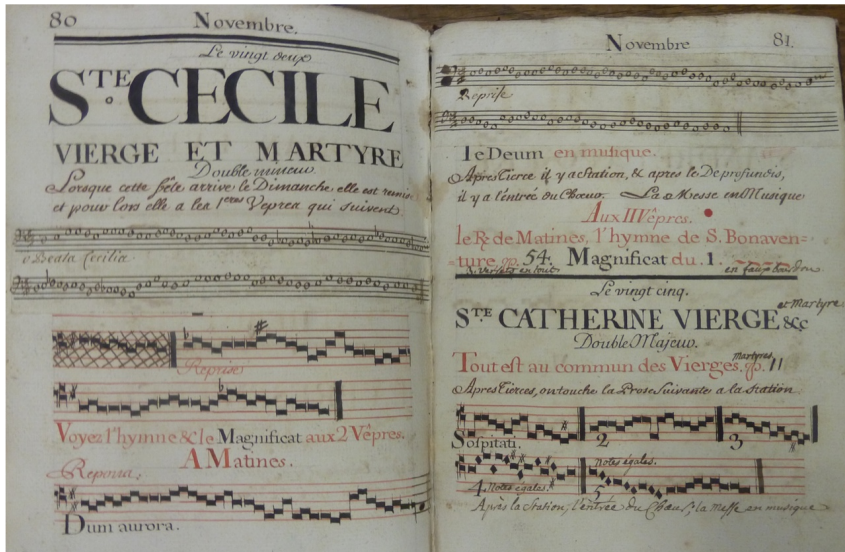 80
Novembre.
Le vingt deux
STE CECILE
VIERGE ET MARTYRE
Double mineur.
Lorsque cette fête arrive le Dimanche elle est remise
et pour lors elle a les 1eres Vepres qui suivent.
o Beata Cecilia
Reprise
Voyez l'hymne &c le Magnificat aux 2 Vêpres.
A Matines.
Repons.
Dum aurora.
Novembre
81.
Reprise
Te Deum en musique.
Apres Tierce il y a Station, & apres le De profundis,
il y a l'entrée du Chœur. La Messe en Musique
Aux II Vêpres.
le R. de Matines, l'hymne de S. Bonaven=
=ture. p. 54. Magnificat du 1.
5 versets en tout. en faux bourdon
Le vingt cinq.
STE CATHERINE VIERGE et Martyre &c
Double Majeur.
Tout est au commun des Vierges martyres p. 11
Apres Tierces, on touche la Prose Suivante a la Station.
Sospitati. 2 3
4 Notes égales. 5 Notes égales.
Après la Station, l'entrée du Chœur, la messe en musique